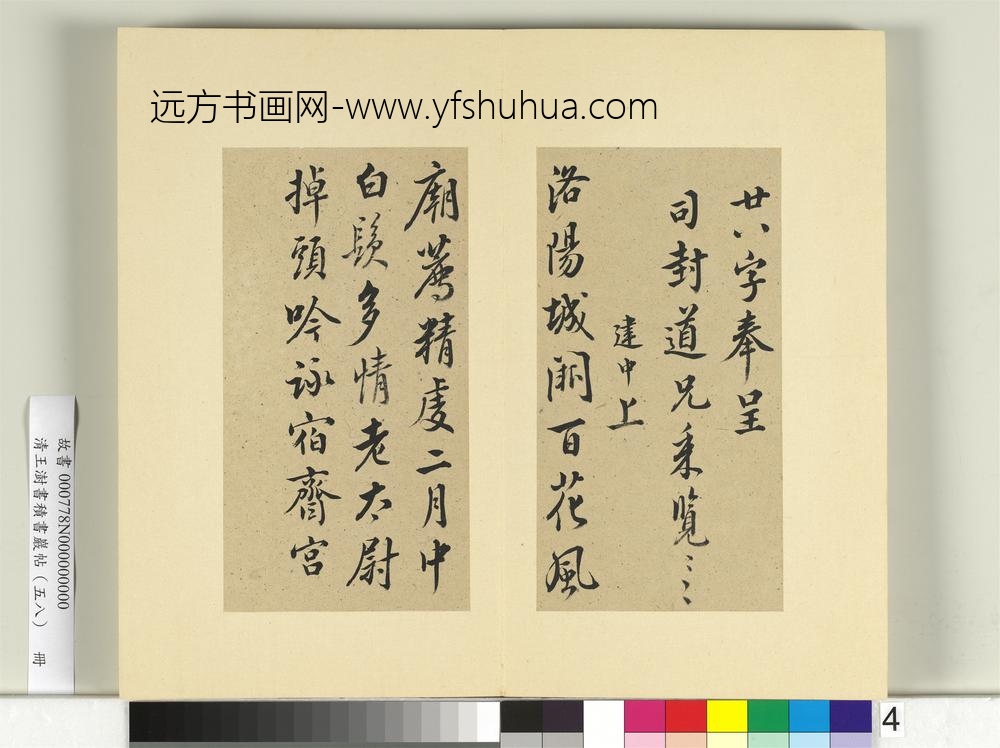 远方书画网-www.yfshuhua.com
廿八字奉呈
司封道兄采覽〻〻
建中上
洛陽城闕百花風
廟薦精虔二月中
白髮多情老太尉
掉頭吟詠宿齋宮
故書000778N000000000
清王澍書積書巖帖(五八) 冊
4